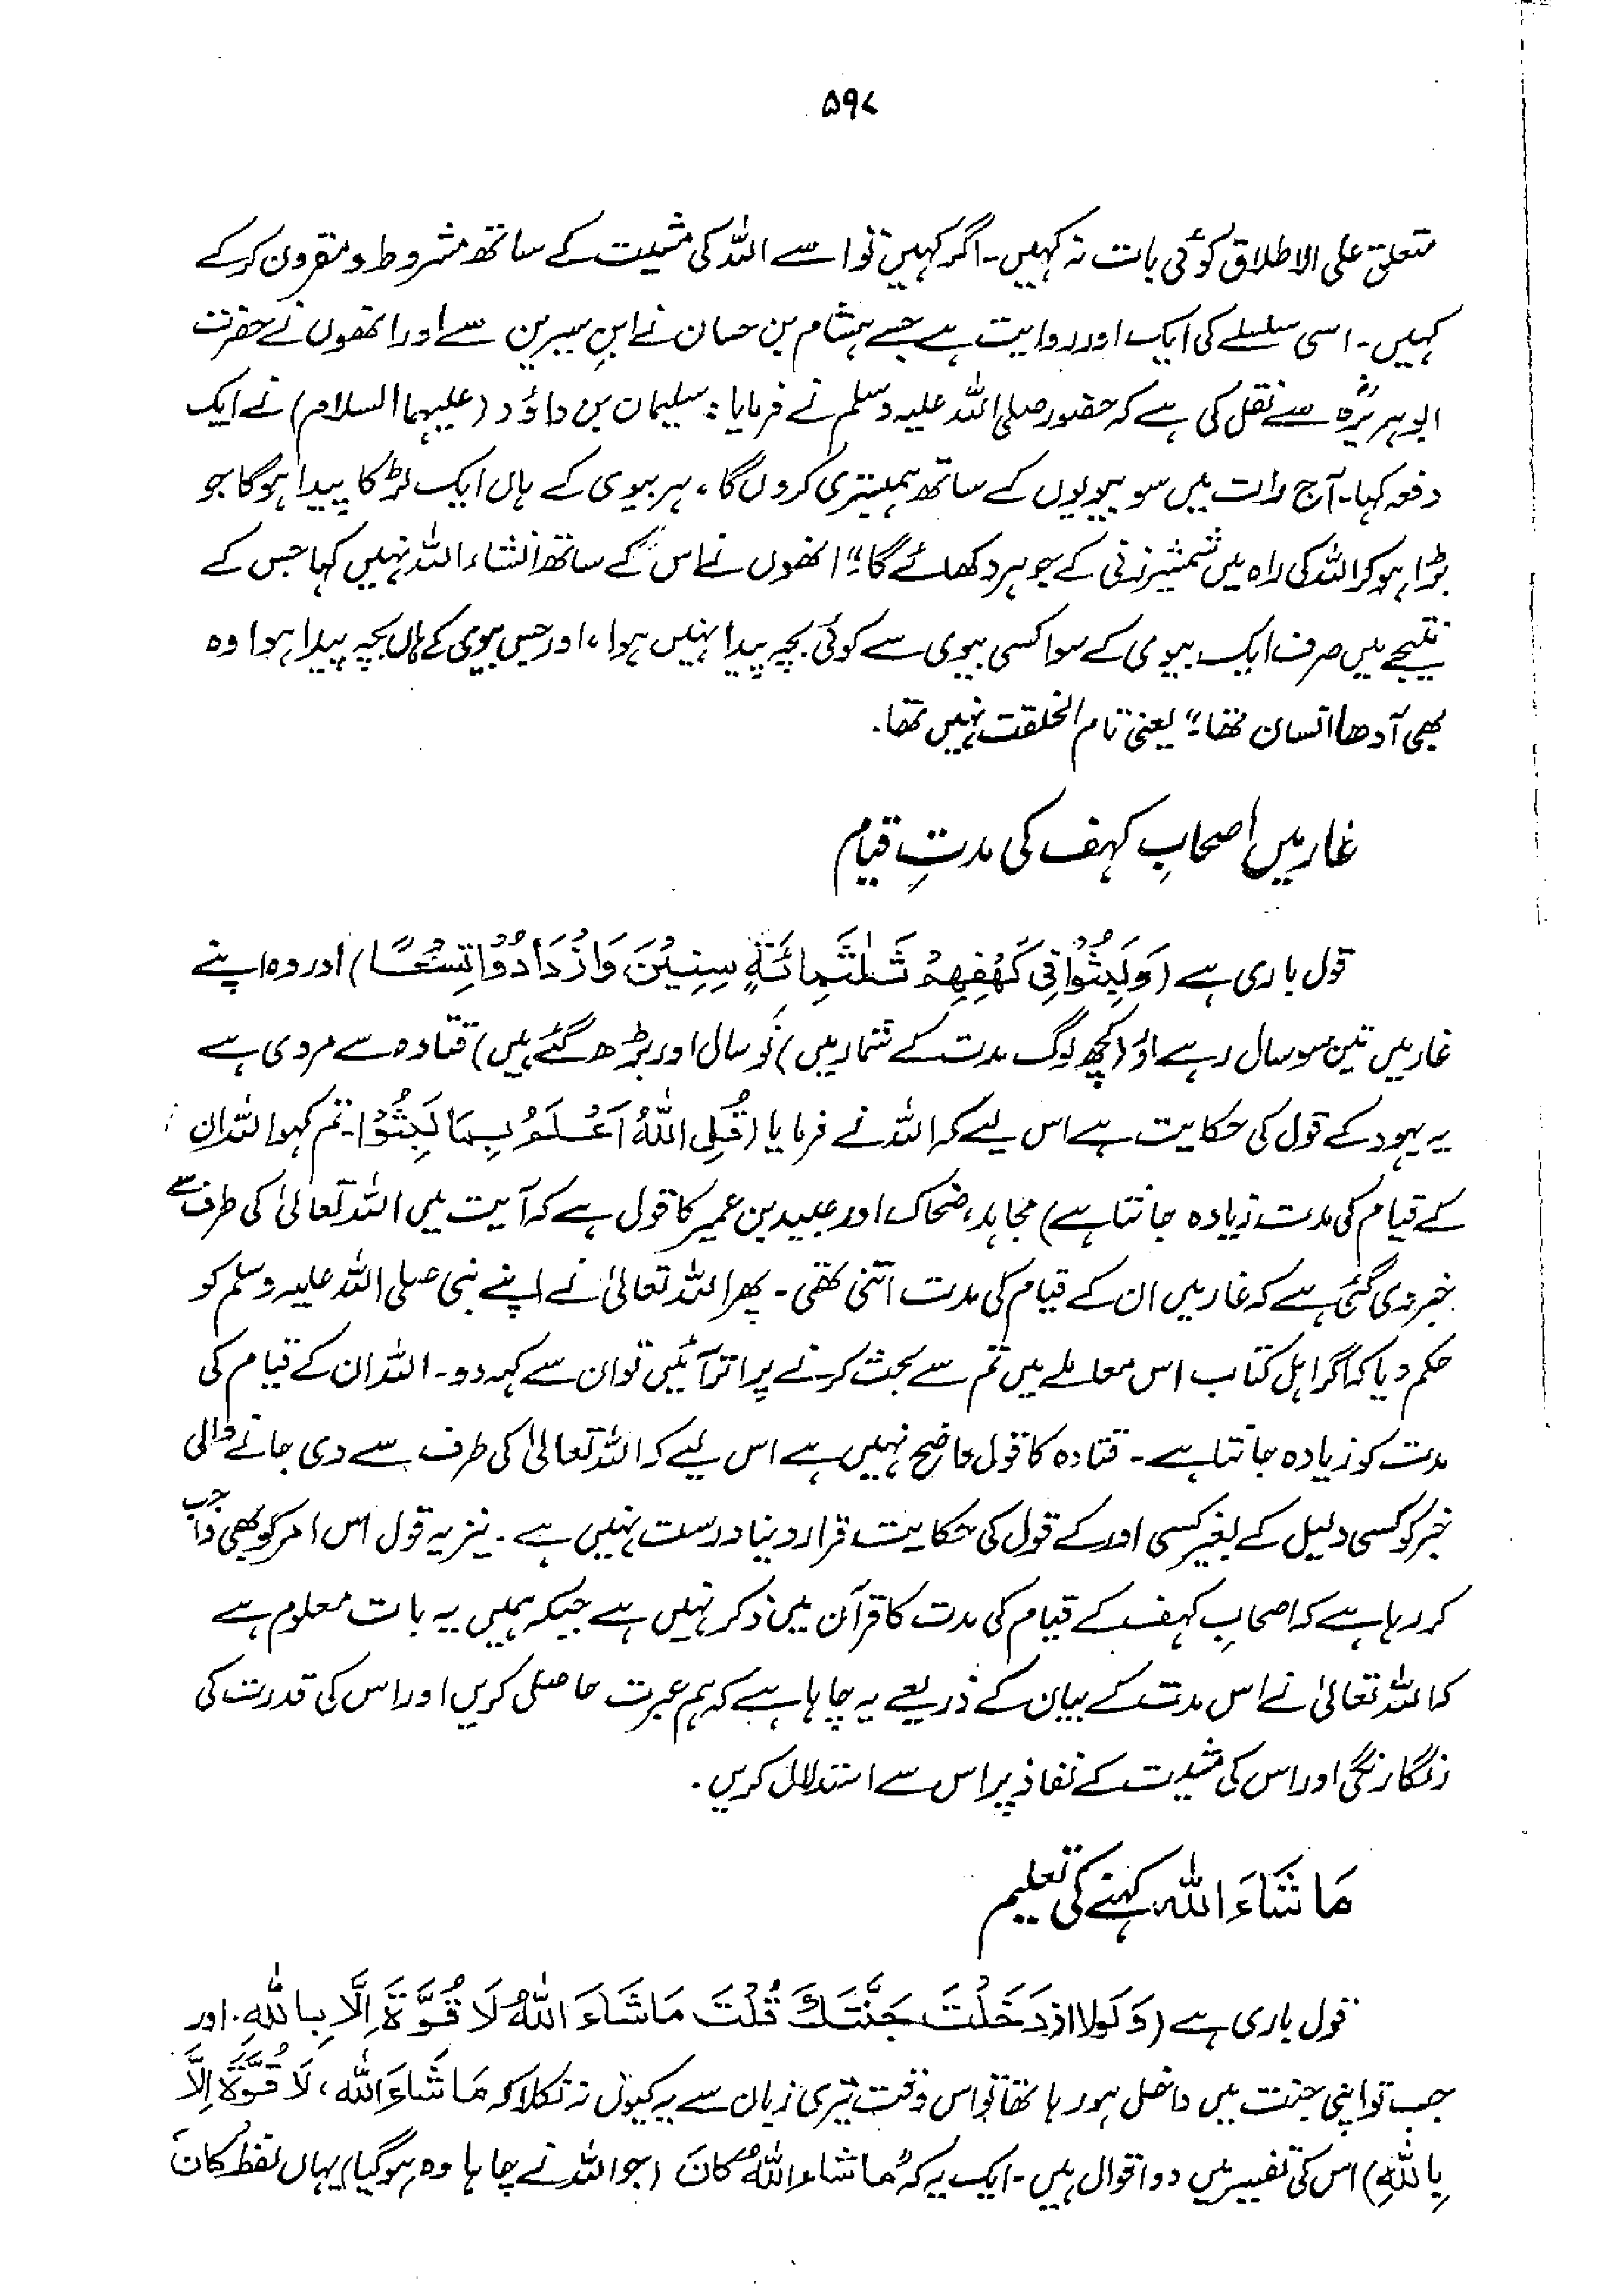 ۵۹۷
متعلق علی الاطلاق کوئی بات نہ کہیں۔ اگر کہیں تو اسے اللہ کی مشیت کے ساتھ مشروط و مقرون کرکے
کہیں۔ اسی سلسلے کی ایک اور روایت ہے جسے ہشام بن حسان نے ابنِ سیرین سے اور انھوں نے حضرت
ابوہریرہؓ سے نقل کی ہے کہ حضور صلی اللہ علیہ وسلم نے فرمایا: سلیمان بن داؤد (علیہما السلام) نے ایک
دفعہ کہا۔ آج رات میں سو بیویوں کے ساتھ ہمبستری کروں گا، ہر بیوی کے ہاں ایک لڑکا پیدا ہوگا جو
بڑا ہو کر اللہ کی راہ میں شمشیر زنی کے جوہر دکھائے گا۔" انھوں نے اس کے ساتھ انشاء اللہ نہیں کہا جس کے
نتیجے میں صرف ایک بیوی کے سوا کسی بیوی سے کوئی بچہ پیدا نہیں ہوا، اور جس بیوی کے ہاں بچہ پیدا ہوا وہ
بھی آدھا انسان تھا۔" یعنی تام الخلقت نہیں تھا۔
غار میں اصحابِ کہف کی مدتِ قیام
قول باری ہے (وَلَبِثُوْا فِیْ كَهْفِهِمْ ثَلٰثَمِائَةٍ سِنِيْنَ وَازْدَادُوْا تِسْعًا) اور وہ اپنے
غار میں تین سو سال رہے اور (کچھ لوگ مدت کے شمار میں) نو سال اور بڑھ گئے ہیں) قتادہ سے مروی ہے
یہ یہود کے قول کی حکایت ہے اس لیے کہ اللہ نے فرمایا (قُلِ اللّٰهُ اَعْلَمُ بِمَا لَبِثُوْا۔ تم کہو اللہ ان
کے قیام کی مدت زیادہ جانتا ہے) مجاہد، ضحاک اور عبید بن عمیر کا قول ہے کہ آیت میں اللہ تعالیٰ کی طرف سے
خبر دی گئی ہے کہ غار میں ان کے قیام کی مدت اتنی تھی۔ پھر اللہ تعالیٰ نے اپنے نبی صلی اللہ علیہ وسلم کو
حکم دیا کہ اگر اہل کتاب اس معاملے میں تم سے بحث کرنے پر اتر آئیں تو ان سے کہہ دو۔ اللہ ان کے قیام کی
مدت کو زیادہ جانتا ہے۔ قتادہ کا قول واضح نہیں ہے اس لیے کہ اللہ تعالیٰ کی طرف سے دی جانے والی
خبر کو کسی دلیل کے بغیر کسی اور کے قول کی حکایت قرار دینا درست نہیں ہے۔ نیز یہ قول اس امر کو بھی واجب
کر رہا ہے کہ اصحابِ کہف کے قیام کی مدت کا قرآن میں ذکر نہیں ہے جبکہ ہمیں یہ بات معلوم ہے
کہ اللہ تعالیٰ نے اس مدت کے بیان کے ذریعے یہ چاہا ہے کہ ہم عبرت حاصل کریں اور اس کی قدرت کی
رنگا رنگی اور اس کی مشیت کے نفاذ پر اس سے استدلال کریں۔
مَا شَاءَ اللہ کہنے کی تعلیم
قول باری ہے (وَلَولا اِذ دَخَلْتَ جَنَّتَكَ قُلْتَ مَا شَاءَ اللّٰهُ لَا قُوَّةَ اِلَّا بِاللّٰهِ۔ اور
جب تو اپنی جنت میں داخل ہو رہا تھا تو اس وقت تیری زبان سے یہ کیوں نہ نکلا کہ مَا شَاءَ اللہ، لَا قُوَّةَ اِلَّا
بِاللّٰهِ) اس کی تفسیر میں دو اقوال ہیں۔ ایک یہ کہ "ما شاء اللّٰهُ كَانَ (جو اللہ نے چاہا وہ ہوگیا) یہاں لفظ کَانَ